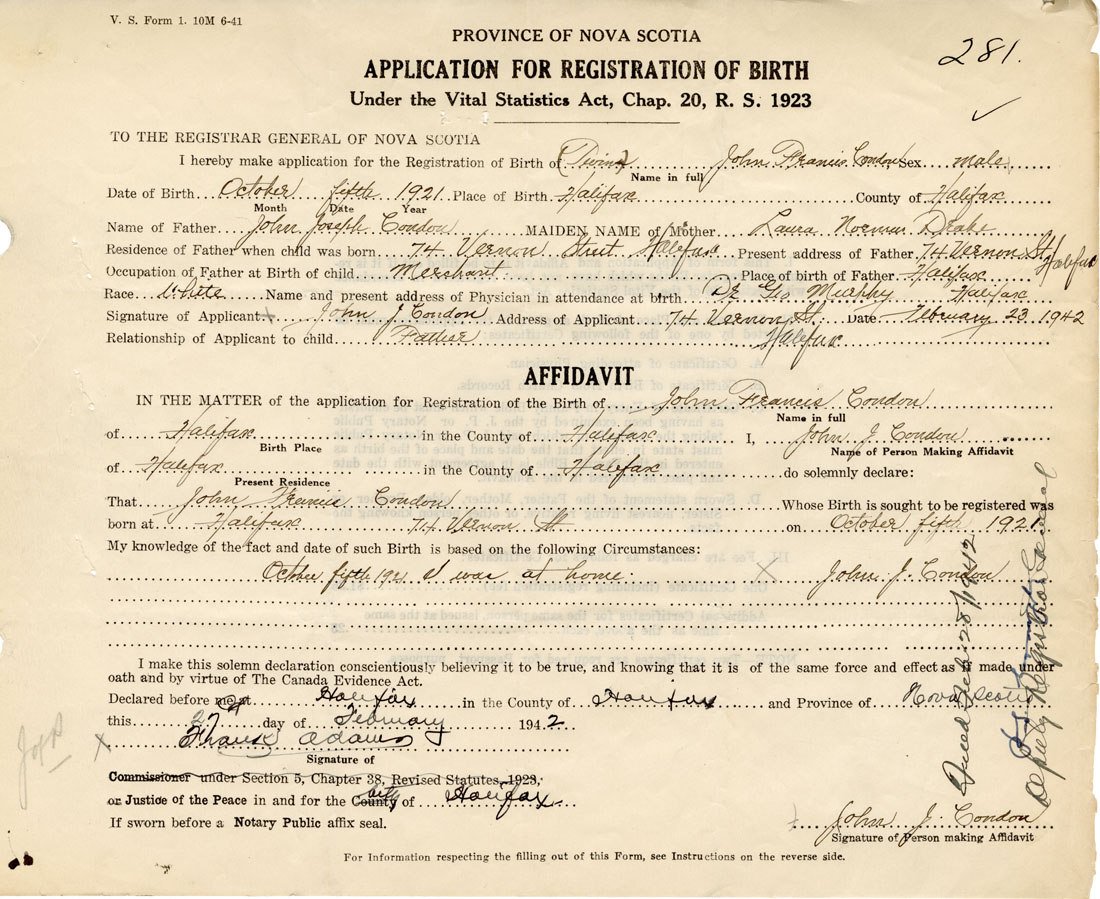 V. S. Form 1. 10M 6-41
PROVINCE OF NOVA SCOTIA
281.
APPLICATION FOR REGISTRATION OF BIRTH
Under the Vital Statistics Act, Chap. 20, R. S. 1923
TO THE REGISTRAR GENERAL OF NOVA SCOTIA
I hereby make application for the Registration of Birth of (Twins) John Francis Condon Sex male
Name in full
Date of Birth October fifth 1921 Place of Birth Halifax County of Halifax
Month Date Year
Name of Father John Joseph Condon MAIDEN NAME of Mother Laura Norman Drake
Residence of Father when child was born 74 Vernon Street Halifax Present address of Father 74 Vernon St Halifax
Occupation of Father at Birth of child Merchant Place of birth of Father Halifax
Race White Name and present address of Physician in attendance at birth Dr Geo Murphy Halifax
Signature of Applicant x John J Condon Address of Applicant 74 Vernon St. Date February 23 1942
Relationship of Applicant to child Father Halifax
AFFIDAVIT
IN THE MATTER of the application for Registration of the Birth of John Francis Condon
Name in full
of Halifax in the County of Halifax I, John J Condon
Birth Place Name of Person Making Affidavit
of Halifax in the County of Halifax do solemnly declare:
Present Residence
That John Francis Condon Whose Birth is sought to be registered was
born at Halifax 74 Vernon St on October fifth 1921
My knowledge of the fact and date of such Birth is based on the following Circumstances:
October fifth 1921 I was at home X John J. Condon
I make this solemn declaration conscientiously believing it to be true, and knowing that it is of the same force and effect as if made under
oath and by virtue of The Canada Evidence Act.
Declared before me at Halifax in the County of Halifax and Province of Nova Scotia
this 27 day of February 1942
x Adams
Signature of
Commissioner under Section 5, Chapter 38, Revised Statutes, 1923,
or Justice of the Peace in and for the County city of Halifax
If sworn before a Notary Public affix seal.
John J. Condon
Signature of Person making Affidavit
For Information respecting the filling out of this Form, see Instructions on the reverse side.
Deputy Registrar General